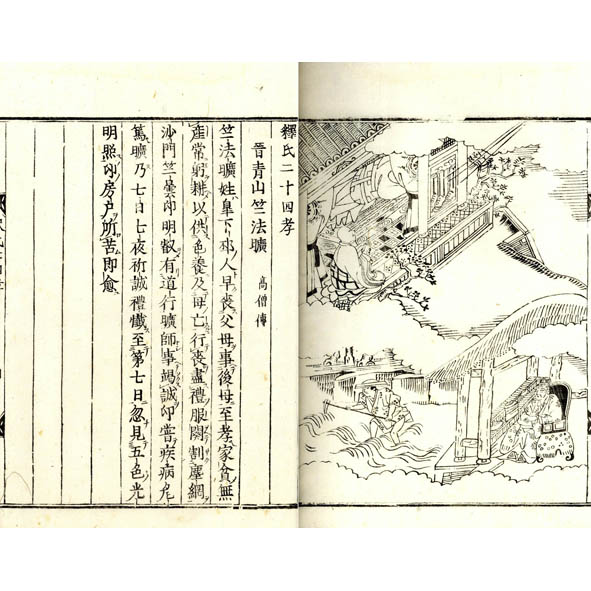 釋氏二十四孝
晉青山竺法曠　高僧傳
竺法曠姓皐下邳人早喪父母事後母至孝家貧無
產常躬耕以供色養及母亡行喪盡禮服闋割塵網
沙門竺曇印明叡有道行曠師事竭誠印嘗疾病危
篤曠乃七日七夜祈誠禮懺至第七日忽見五色光
明照印房戶所苦即愈